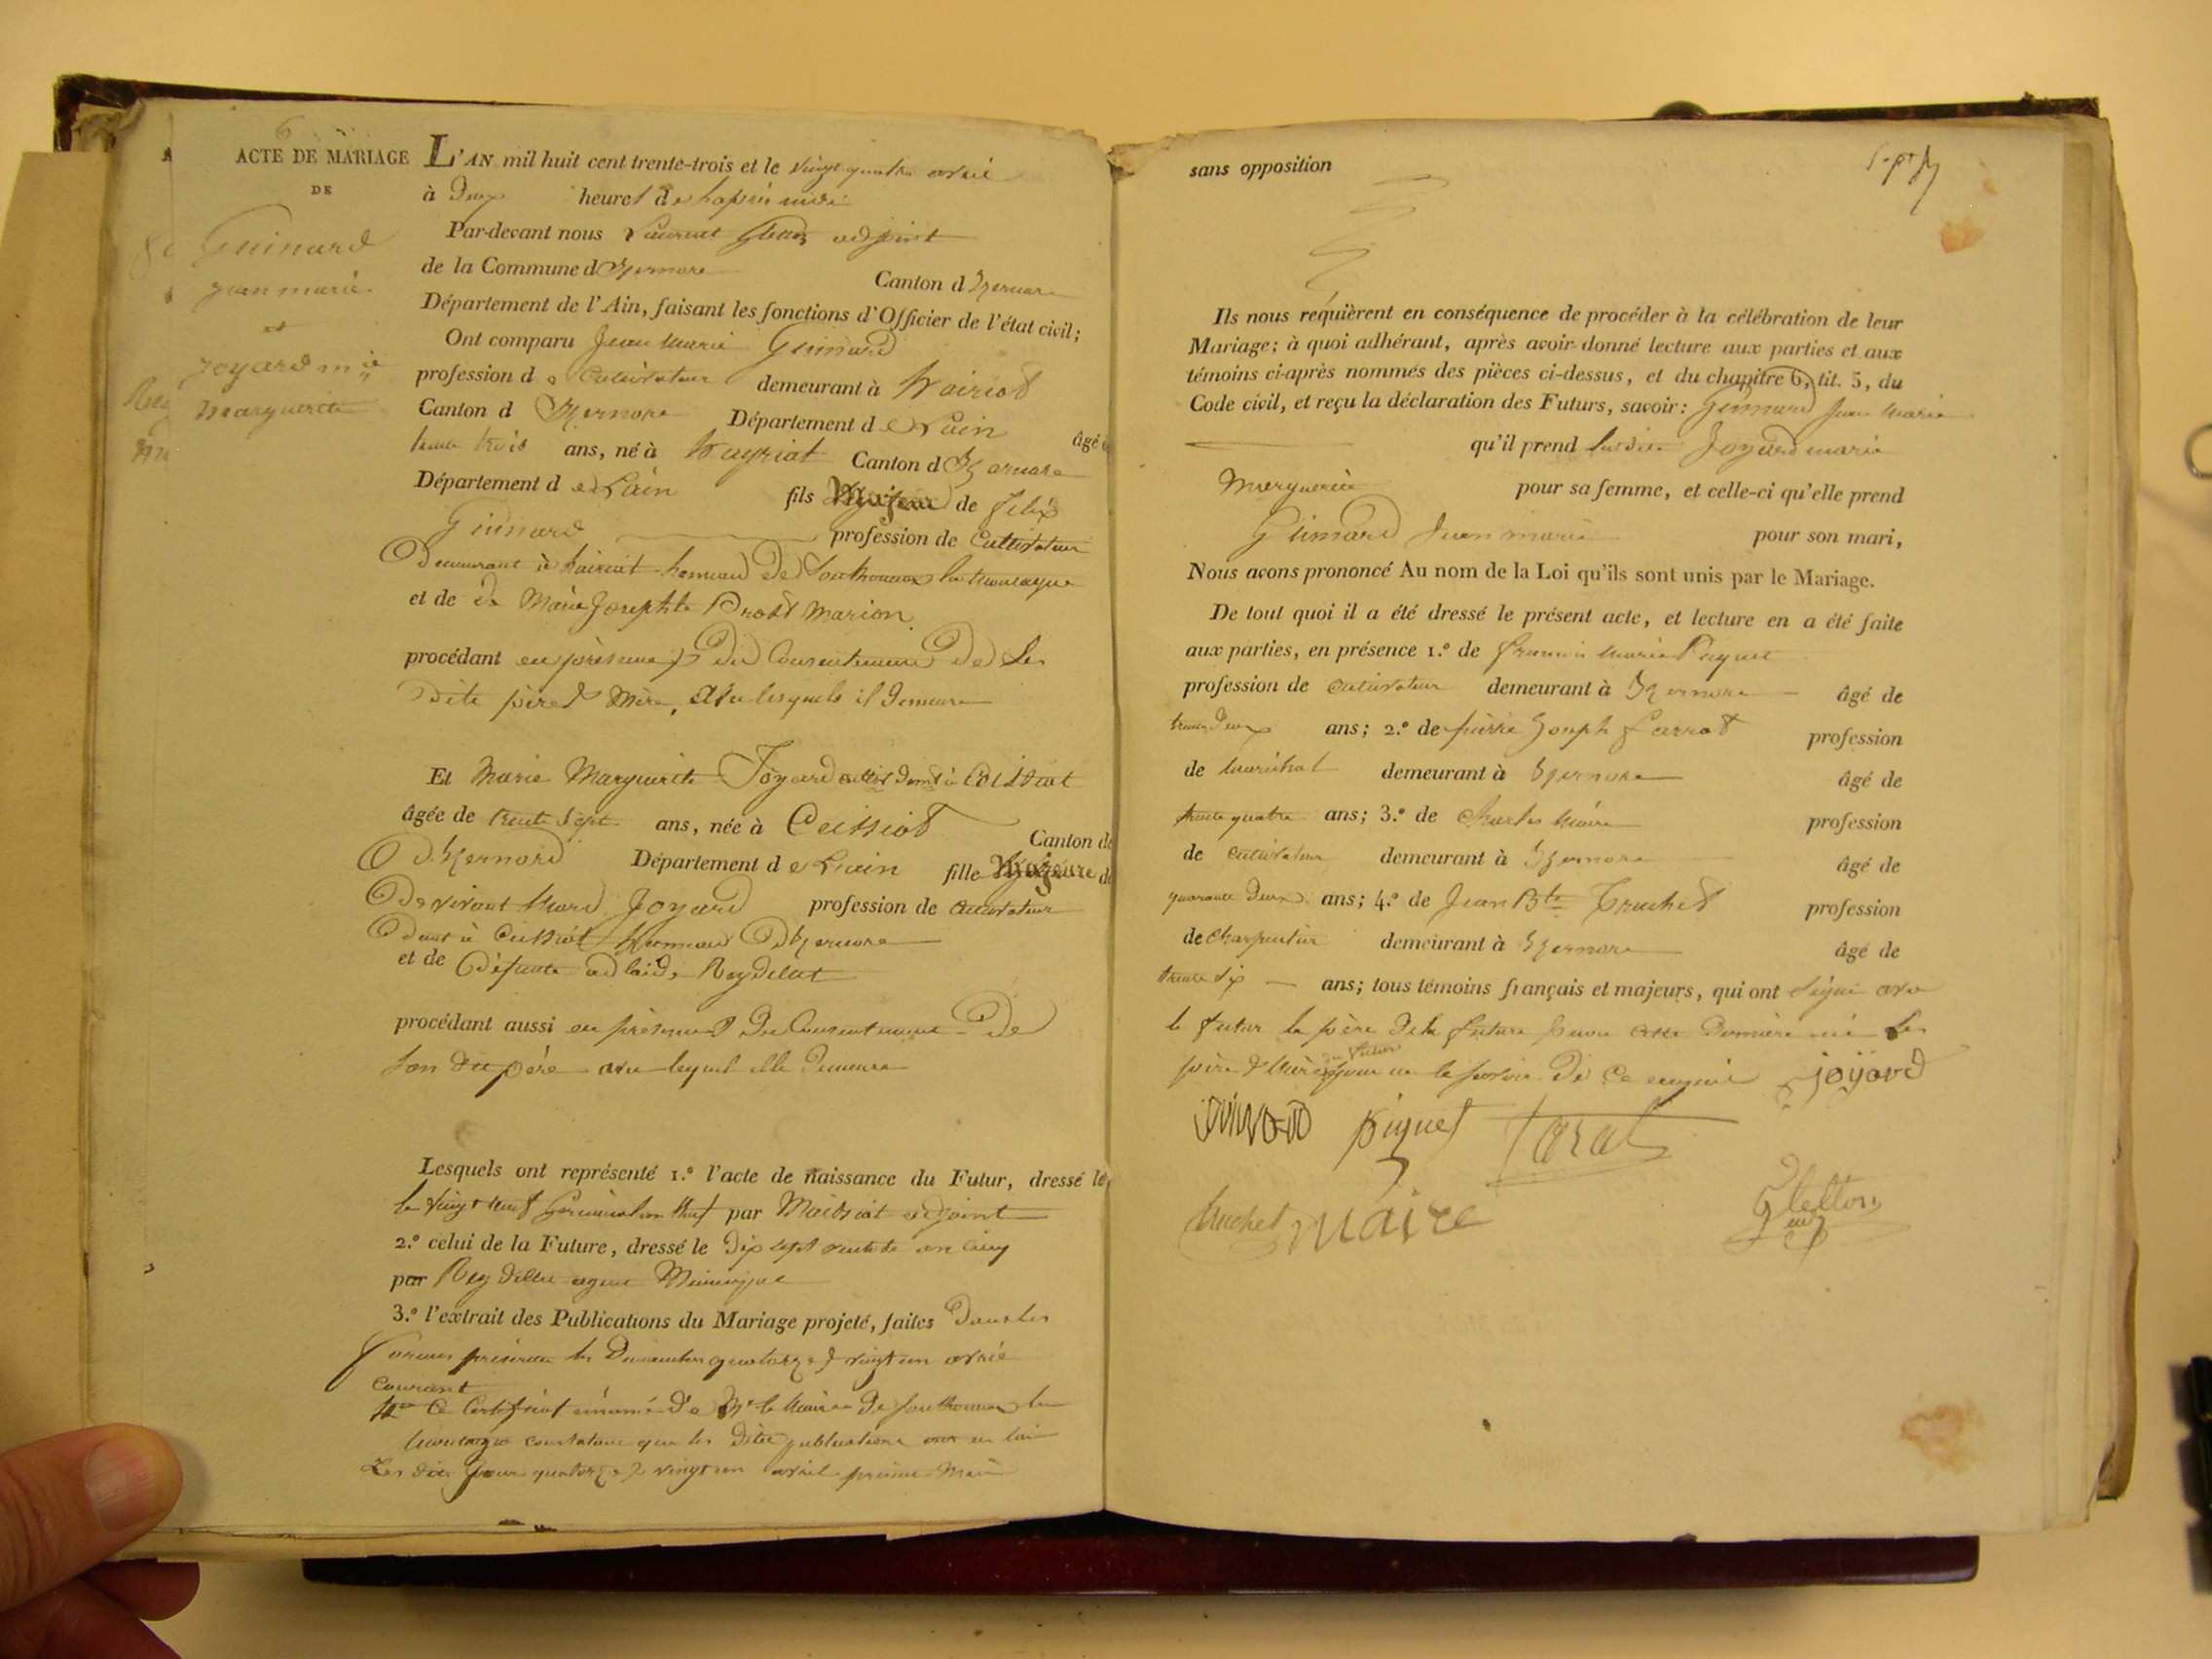 6
ACTE DE MARIAGE
DE
Guinard
jean marie
et
joyard mie
marguerite
L'AN mil huit cent trente-trois et le vingt quatre avril
à deux heures de
Par-devant nous Laurent adjoint
de la Commune d'Izernore Canton d'Izernore
Département de l'Ain, faisant les fonctions d'Officier de l'état civil;
Ont comparu Jean Marie Guinard
profession de Cultivateur demeurant à
Canton d'Izernore Département de Lain âgé
trente trois ans, né à Canton d'Izernore
Département de Lain fils Majeur de Felix
Guinard profession de Cultivateur
Demeurant à hameau de la montagne
et de Marie Josephte Prost Marion
procédant en présence & du Consentement de ses
dits père & mère, avec lesquels il demeure
Et Marie Marguerite Joyard à Ceissiat
âgée de trente sept ans, née à Ceissiat Canton d
D'Izernore Département de Lain fille Majeure d
Joyard profession de cultivateur
à Ceissiat hameau D'Izernore
et de Défunte adlaide Reydellet
procédant aussi en présence & du Consentement De
son dit père avec lequel elle demeure
Lesquels ont représenté 1.º l'acte de naissance du Futur, dressé le
le vingt neuf Germinal an huit par Moissiat adjoint
2.º celui de la Future, dressé le dix sept an cinq
par Reydellet agent Municipal
3.º l'extrait des Publications du Mariage projeté, faites Dans les
formes les Dimanches quatorze & vingt un avril
courant
4º Ce Certificat émané de Mr le Maire de la
montagne constatant que les dites publications ont eu lieu
Les dits jours quatorze & vingt un avril
sans opposition
Ils nous requièrent en conséquence de procéder à la célébration de leur
Mariage; à quoi adhérant, après avoir donné lecture aux parties et aux
témoins ci-après nommés des pièces ci-dessus, et du chapitre 6, tit. 5, du
Code civil, et reçu la déclaration des Futurs, savoir: Guinard Jean Marie
qu'il prend ladite Joyard marie
Marguerite pour sa femme, et celle-ci qu'elle prend
Guinard Jean marie pour son mari,
Nous avons prononcé Au nom de la Loi qu'ils sont unis par le Mariage.
De tout quoi il a été dressé le présent acte, et lecture en a été faite
aux parties, en présence 1.º de Marie
profession de cultivateur demeurant à Izernore âgé de
trente deux ans; 2.º de pierre Joseph profession
de Maréchal demeurant à Izernore âgé de
trente quatre ans; 3.º de Charles Maire profession
de cultivateur demeurant à Izernore âgé de
quarante deux ans; 4.º de Jean Bte Truchet profession
de Charpentier demeurant à Izernore âgé de
trente six ans; tous témoins français et majeurs, qui ont signé avec
le futur le père de la future & non cette dernière ni les
père & mère du futur pour ne le savoir de ce enquis joyard
piquet
maire